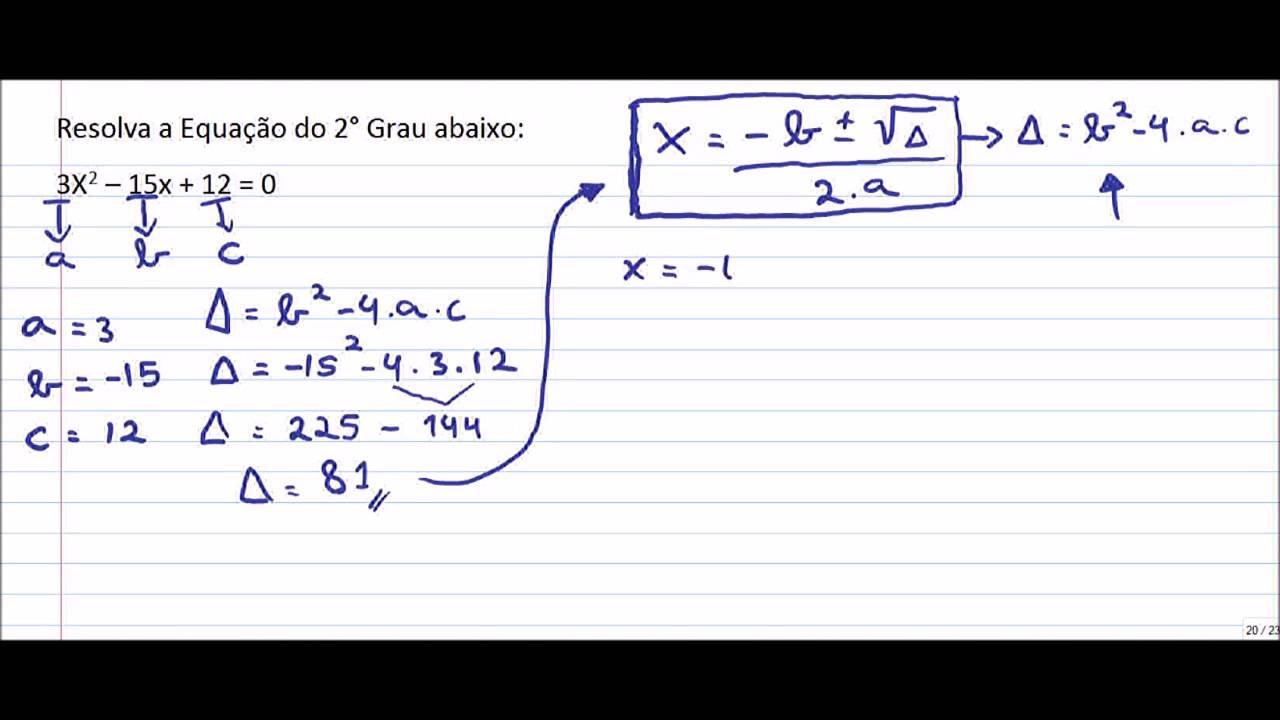 Resolva a Equação do 2° Grau abaixo:
3X² – 15x + 12 = 0
a b c
a = 3
b = -15
c = 12
Δ = b² - 4.a.c
Δ = -15² - 4.3.12
Δ = 225 - 144
Δ = 81
X = -b ± √Δ / 2.a
→ Δ = b² - 4.a.c
x = -(
20 / 23